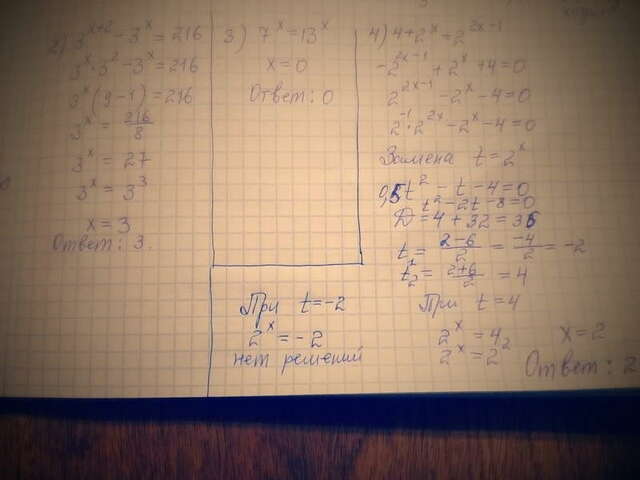 2) 3^{x+2} - 3^x = 216
3^x · 3^2 - 3^x = 216
3^x (9-1) = 216
3^x = 216/8
3^x = 27
3^x = 3^3
x = 3
Ответ: 3.
3) 7^x = 13^x
x = 0
Ответ: 0
4) 4 + 2^x = 2^{2x-1}
-2^{2x-1} + 2^x + 4 = 0
2^{2x-1} - 2^x - 4 = 0
2^{-1} · 2^{2x} - 2^x - 4 = 0
Замена t = 2^x
0,5t^2 - t - 4 = 0
t^2 - 2t - 8 = 0
D = 4 + 32 = 36
t_1 = (2-6)/2 = -4/2 = -2
t_2 = (2+6)/2 = 4
При t = 4
2^x = 4
2^x = 2^2
x = 2
Ответ: 2
При t = -2
2^x = -2
нет решений